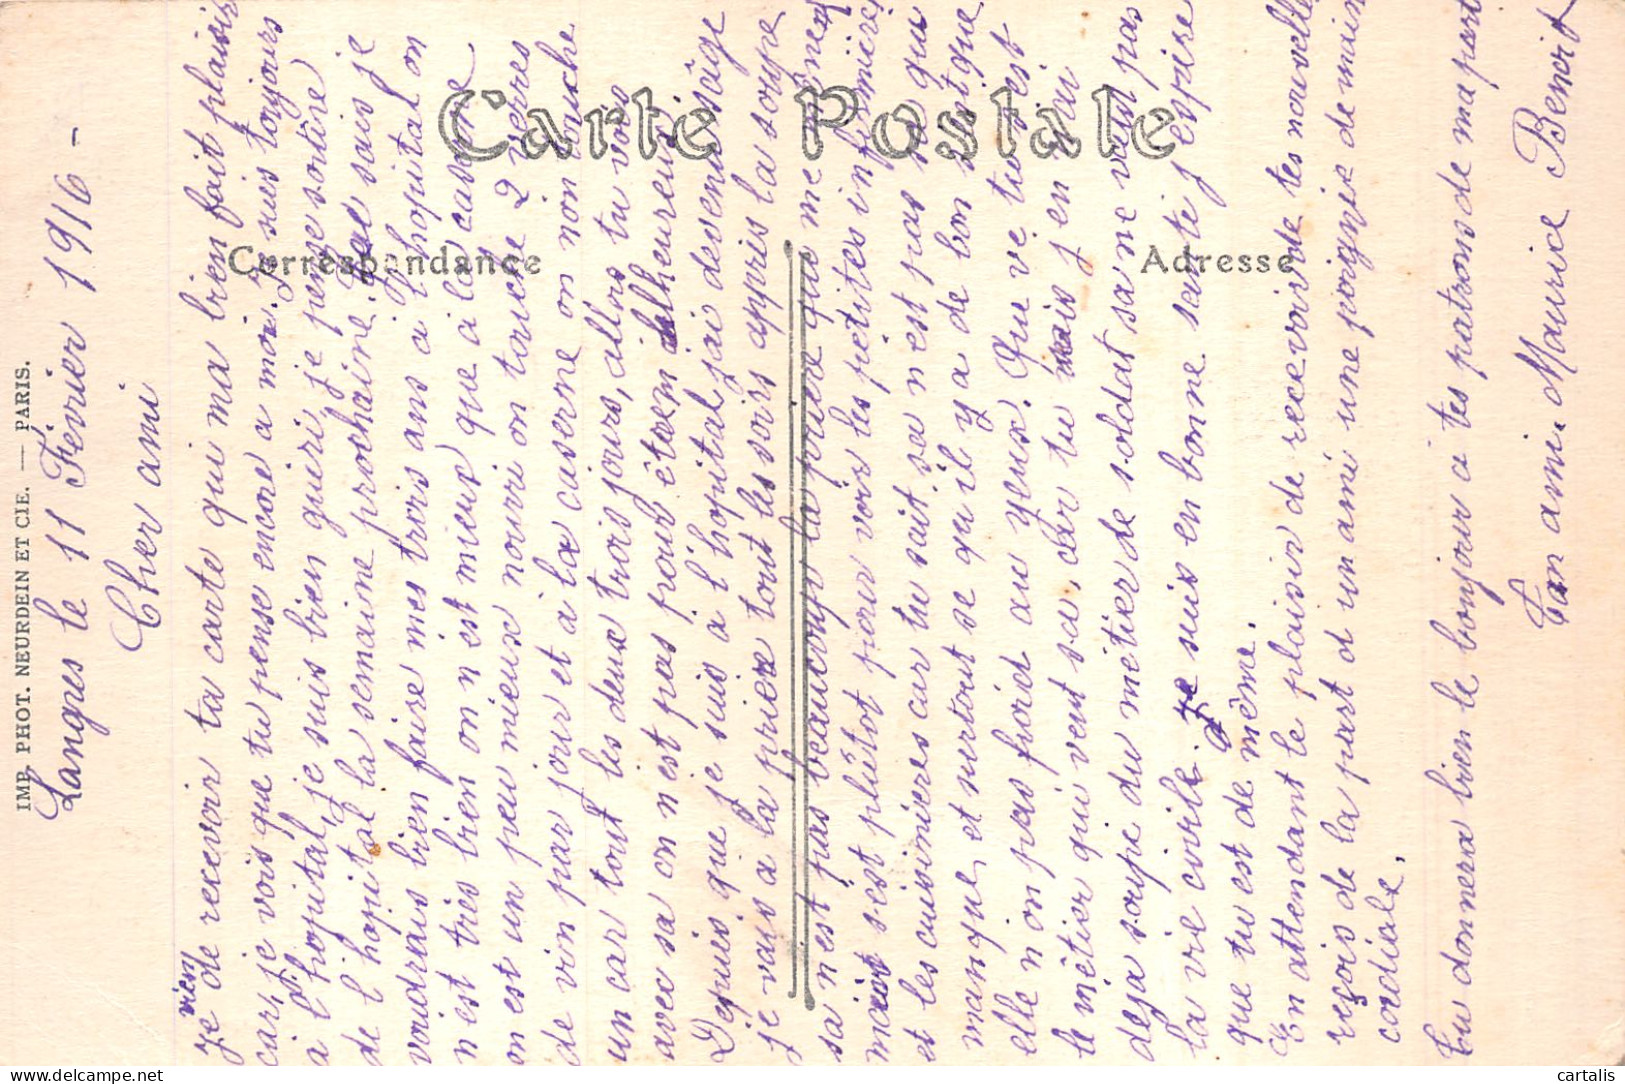 Carte Postale
Correspondance
Adresse
IMP. PHOT. NEURDEIN ET CIE. — PARIS.
Langres le 11 Février 1916 -
Cher ami
Je viens de recevoir ta carte qui ma bien fait plaisir
car, je vois que tu pense encore a moi. Je suis toujours
a l'hopital, je suis bien guéri, je pense sortire
de l'hopital la semaine prochaine sais je
voudrais bien faire mes trois ans a l'hopital on
n est très bien on n'est mieux que a la caserne
on est un peu mieux nourri on touche 2 verres
de vin par jour et à la caserne on non touche
un car tout les deux trois jours, allors tu vois
avec sa on n'est pas pour être malheureux
Depuis que je suis a l'hopital j'ai devenu sage
je vais a la prière tout les soirs apprès la soupe
sa n'est pas beaucoup la prière que me mènent
c'est plutot pour voir les petites infirmières
et les cuisinières car tu sait sa n'est pas sa qui
manque, et surtout se qu'il y a de bon s'est que
elle n'on pas froid au yeux. Que ve tu s'est
le métier qui veut sa, car tu sais j'en ai
deja soupé du métier de soldat sa ne veut pas
la vie civile. Je suis en bonne santé j'espère
que tu est de même.
En attendant le plaisir de recevoir de tes nouvelles
reçois de la part d'un ami une poignie de main
cordiale.
Tu donnera bien le bonjour a tes patrons de ma part
Ton ami. Maurice Benoit
cartalis